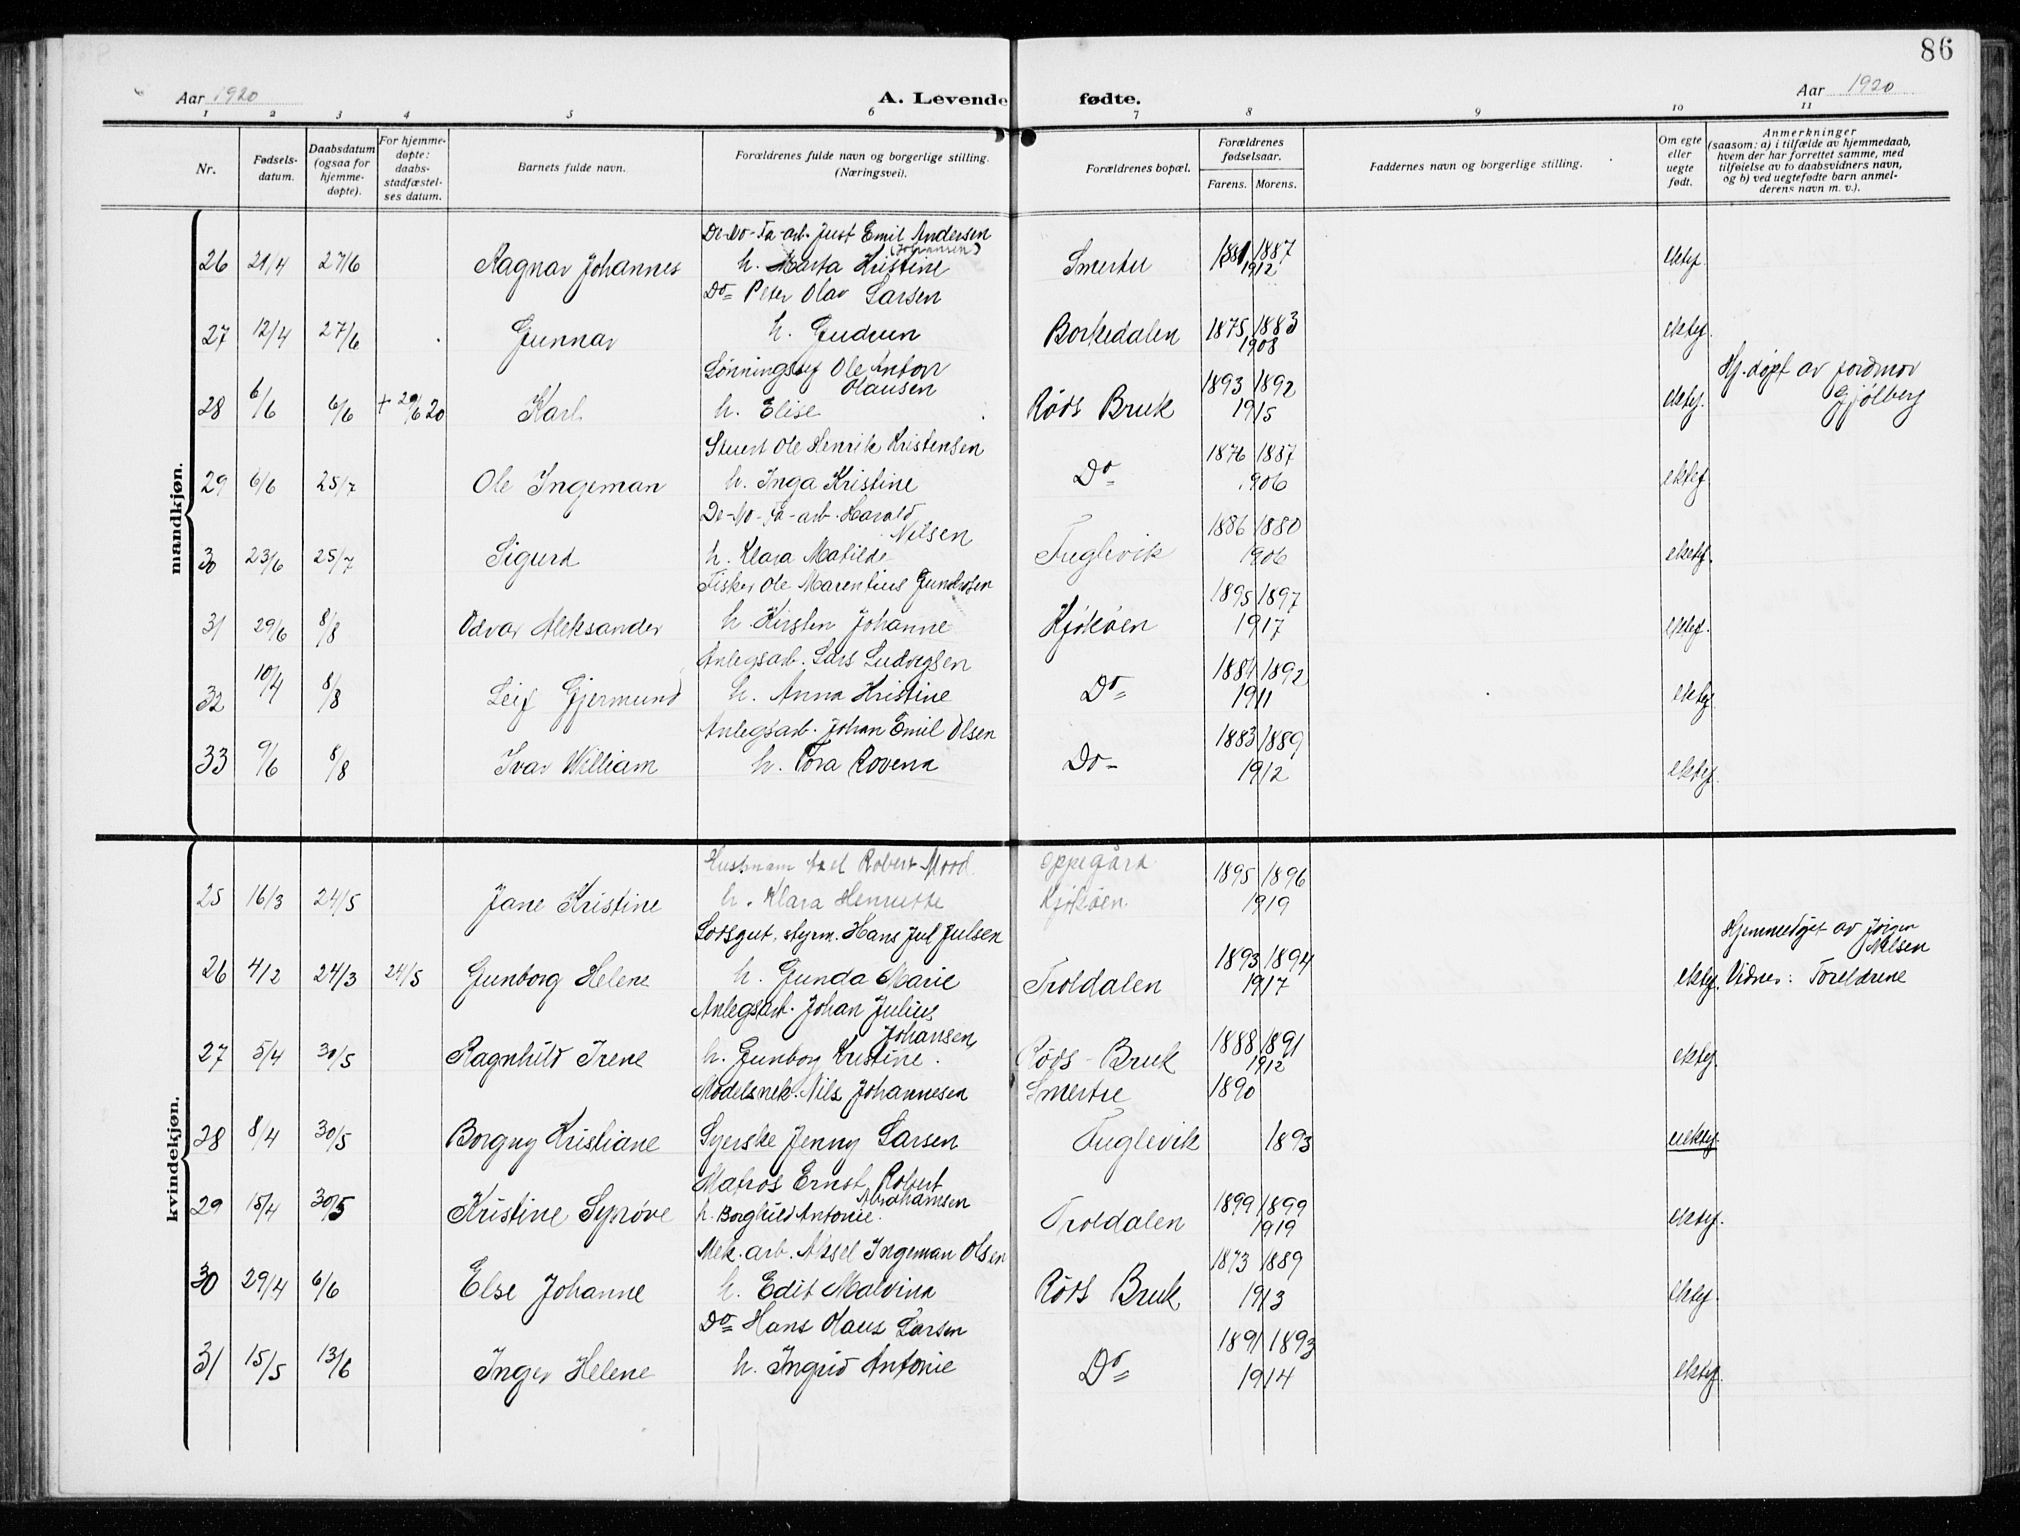 86
Aar 1920
A. Levende fødte.
Aar 1920
1 2 3 4 5 6 7 8 9 10 11
Nr.
Fødsels-
datum.
Daabsdatum
(ogsaa for
hjemme-
døpte).
For hjemme-
døpte:
daabs-
stadfæstel-
ses datum.
Barnets fulde navn.
Forældrenes fulde navn og borgerlige stilling.
(Næringsvei).
Forældrenes bopæl.
Forældrenes
fødselsaar.
Farens. Morens.
Faddernes navn og borgerlige stilling.
Om egte
eller
uegte
født.
Anmerkninger
(saasom: a) i tilfælde av hjemmedaab,
hvem der har forrettet samme, med
tilføielse av to daabsvidners navn,
og b) ved uegtefødte barn anmel-
derens navn m. v.).
mandkjøn.
De-No-Fa-arb. Just Emil Andersen
(Johansen)
26 21/4 27/6 Ragnar Johannes h. Marta Kristine Smertu 1881 1887 ektef.
1912
Do= Peter Olav Larsen
27 12/4 27/6 Gunnar h. Gudrun Borkedalen 1875 1883 ektef.
1908
Lønningssjef Ole Anton
Olausen
28 6/6 6/6 + 29/6 20 Karl h. Elise Røds Bruk 1893 1892 ektef. Hj. døpt av jordmor
1915 Gjølberg
Stuert Ole Henrik Kristensen
29 6/6 25/7 Ole Ingeman h. Inga Kristine Do= 1876 1887 ektef.
1906
De-No-Fa-arb. Harald
Nilsen
30 23/6 25/7 Sigurd h. Klara Matilde Fuglevik 1886 1880 ektef.
1906
Fisker Ole Marentius Gundersen
31 29/6 8/8 Odvar Aleksander h. Kirsten Johanne Kjøkøen 1895 1897 ektef.
1917
Anlegsarb. Lars Ludvigsen
32 10/4 8/8 Leif Gjermund h. Anna Kristine Do= 1884 1892 ektef
1911
Anlegsarb. Johan Emil Olsen
33 9/6 8/8 Ivar William h. Tora Rovena Do- 1883 1889 ektef.
1912
kvindekjøn.
Robert Mood. Oppegård
25 16/3 24/5 Jane Kristine h. Klara Henriette Kjøkøen 1895 1896
1919
Losgut, styrm. Hans Jul Julsen
26 4/2 24/3 24/5 Gunborg Helene h. Gunda Marie Troldalen 1893 1894 ektef. Hjemmedøpt av Jørgen
Nilsen
1917 Vidner: Foreldrene
Anlegsarb. Johan Julius
Johansen
27 5/4 30/5 Ragnhild Irene h. Gunborg Kristine. Røds-Bruk 1888 1891 ektef.
1912
Modelsnek. Nils Johannesen Smertu 1890
28 8/4 30/5 Borgny Kristiane Syerske Jenny Larsen Fuglevik 1893 uektef.
Matros Ernst Robert
Abrahamsen
29 15/4 30/5 Kristine Synøve h. Borghild Antonie. Troldalen 1899 1899 ektef.
1919
Mek. arb. Aksel Ingeman Olsen
30 29/4 6/6 Else Johanne h. Edit Malvina Røds Bruk 1873 1889 ektef.
1913
Do= Hans Olaus Larsen
31 15/5 13/6 Inger Helene h. Ingrid Antonie Do= 1891 1893 ektef.
1914